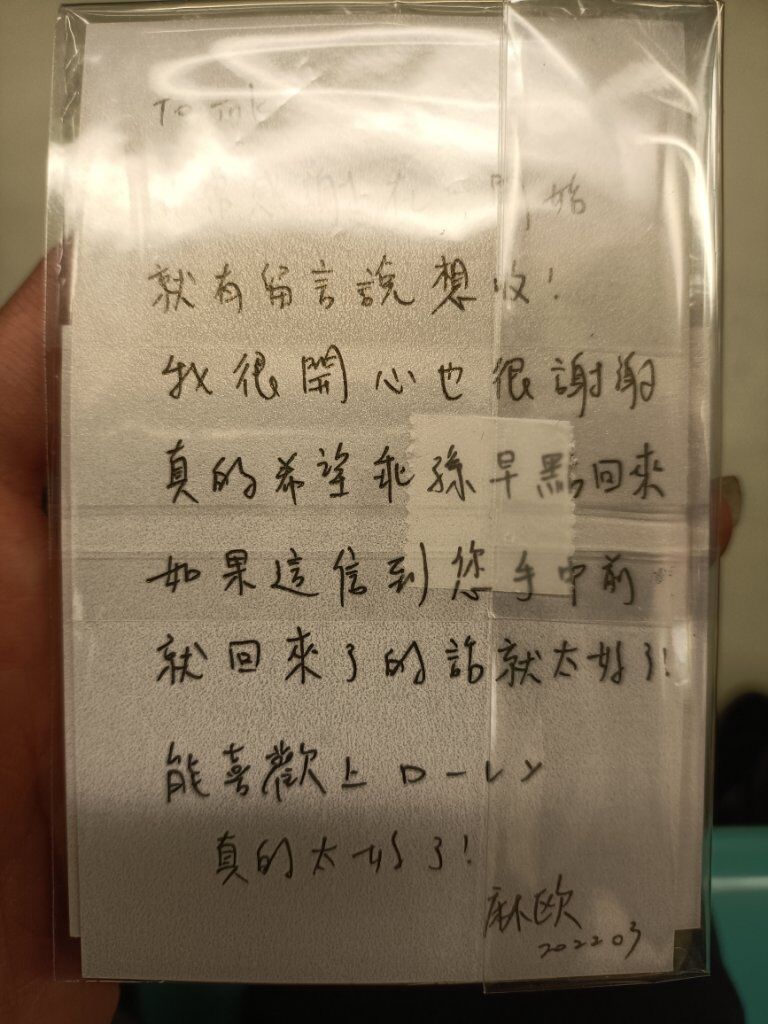 TO
開始
就有留言說想收！
我很開心也很謝謝
真的希望乖孫早點回來
如果這信到您手中前
就回來了的話就太好了！
能喜歡上ローレン
真的太好了！
麻欧
2022.03